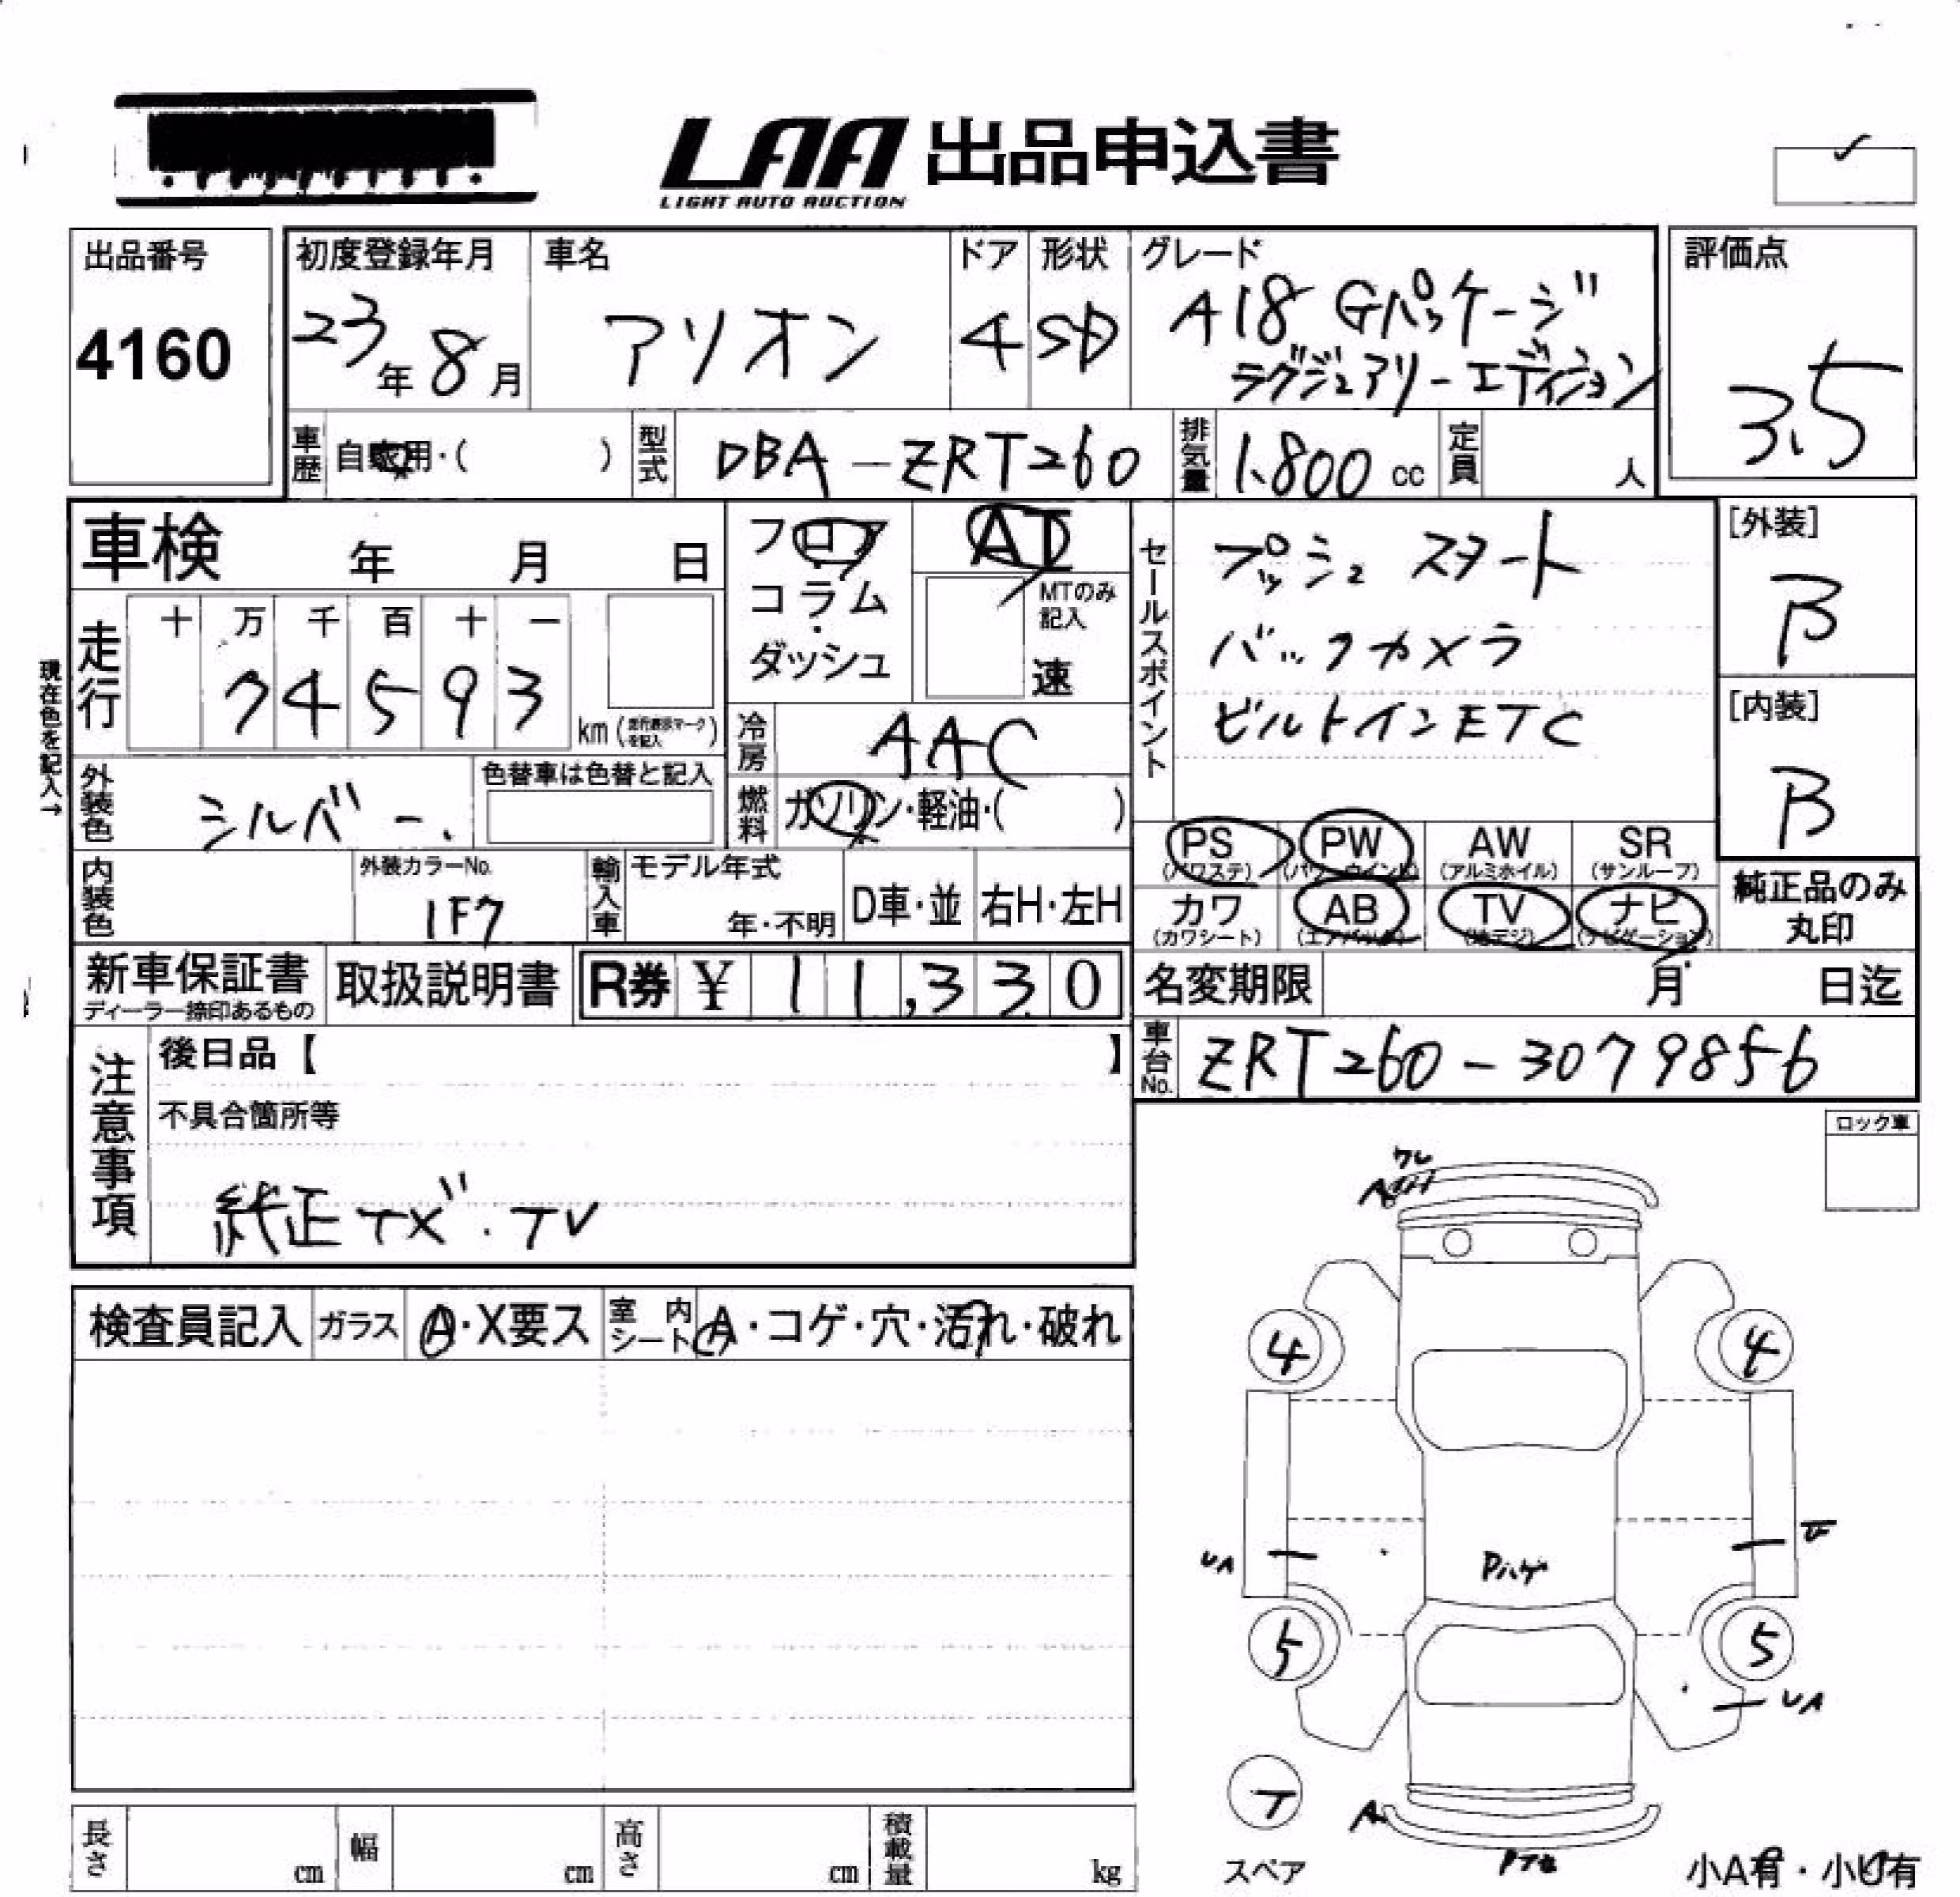 LAA 出品申込書
LIGHT AUTO AUCTION
出品番号
4160
初度登録年月
23年 8月
車名
アリオン
ドア
4
形状
SD
グレード
A18 Gパッケージ
ラグジュアリーエディション
評価点
3.5
車歴
自家用・( )
型式
DBA-ZRT260
排気量
1.800 cc
定員
人
車検 年 月 日
フロア
コラム
ダッシュ
AT
MTのみ
記入
速
セールスポイント
プッシュスタート
バックカメラ
ビルトインETC
[外装]
B
[内装]
B
現在色を記入→
走行
十 万 千 百 十 一
7 4 5 9 3
km (走行表示マークを記入)
冷房
AAC
外装色
シルバー
色替車は色替と記入
燃料
ガソリン・軽油・( )
PS (パワステ)
PW (パワーウインド)
AW (アルミホイル)
SR (サンルーフ)
カワ (カワシート)
AB (エアバッグ)
TV (地デジ)
ナビ (ナビゲーション)
純正品のみ
丸印
内装色
外装カラーNo.
1F7
輸入車
モデル年式
年・不明
D車・並
右H・左H
新車保証書
ディーラー捺印あるもの
取扱説明書
R券 ¥ 11,330
名変期限 月 日迄
車台No.
ZRT260-3079856
注意事項
後日品【 】
不具合箇所等
純正ナビ・TV
ロック車
検査員記入
ガラス
A・X要ス
室内
シート
A・コゲ・穴・汚れ・破れ
A
4
4
UA
Pハゲ
5
5
UA
T
スペア
A
小A有・小U有
長さ
cm
幅
cm
高さ
cm
積載量
kg